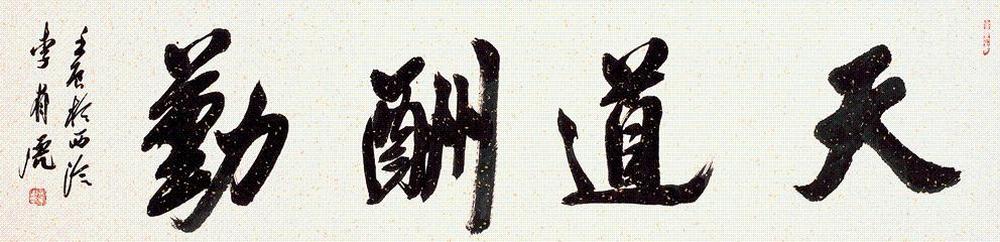 天道酬勤
壬辰於西泠
李有虎